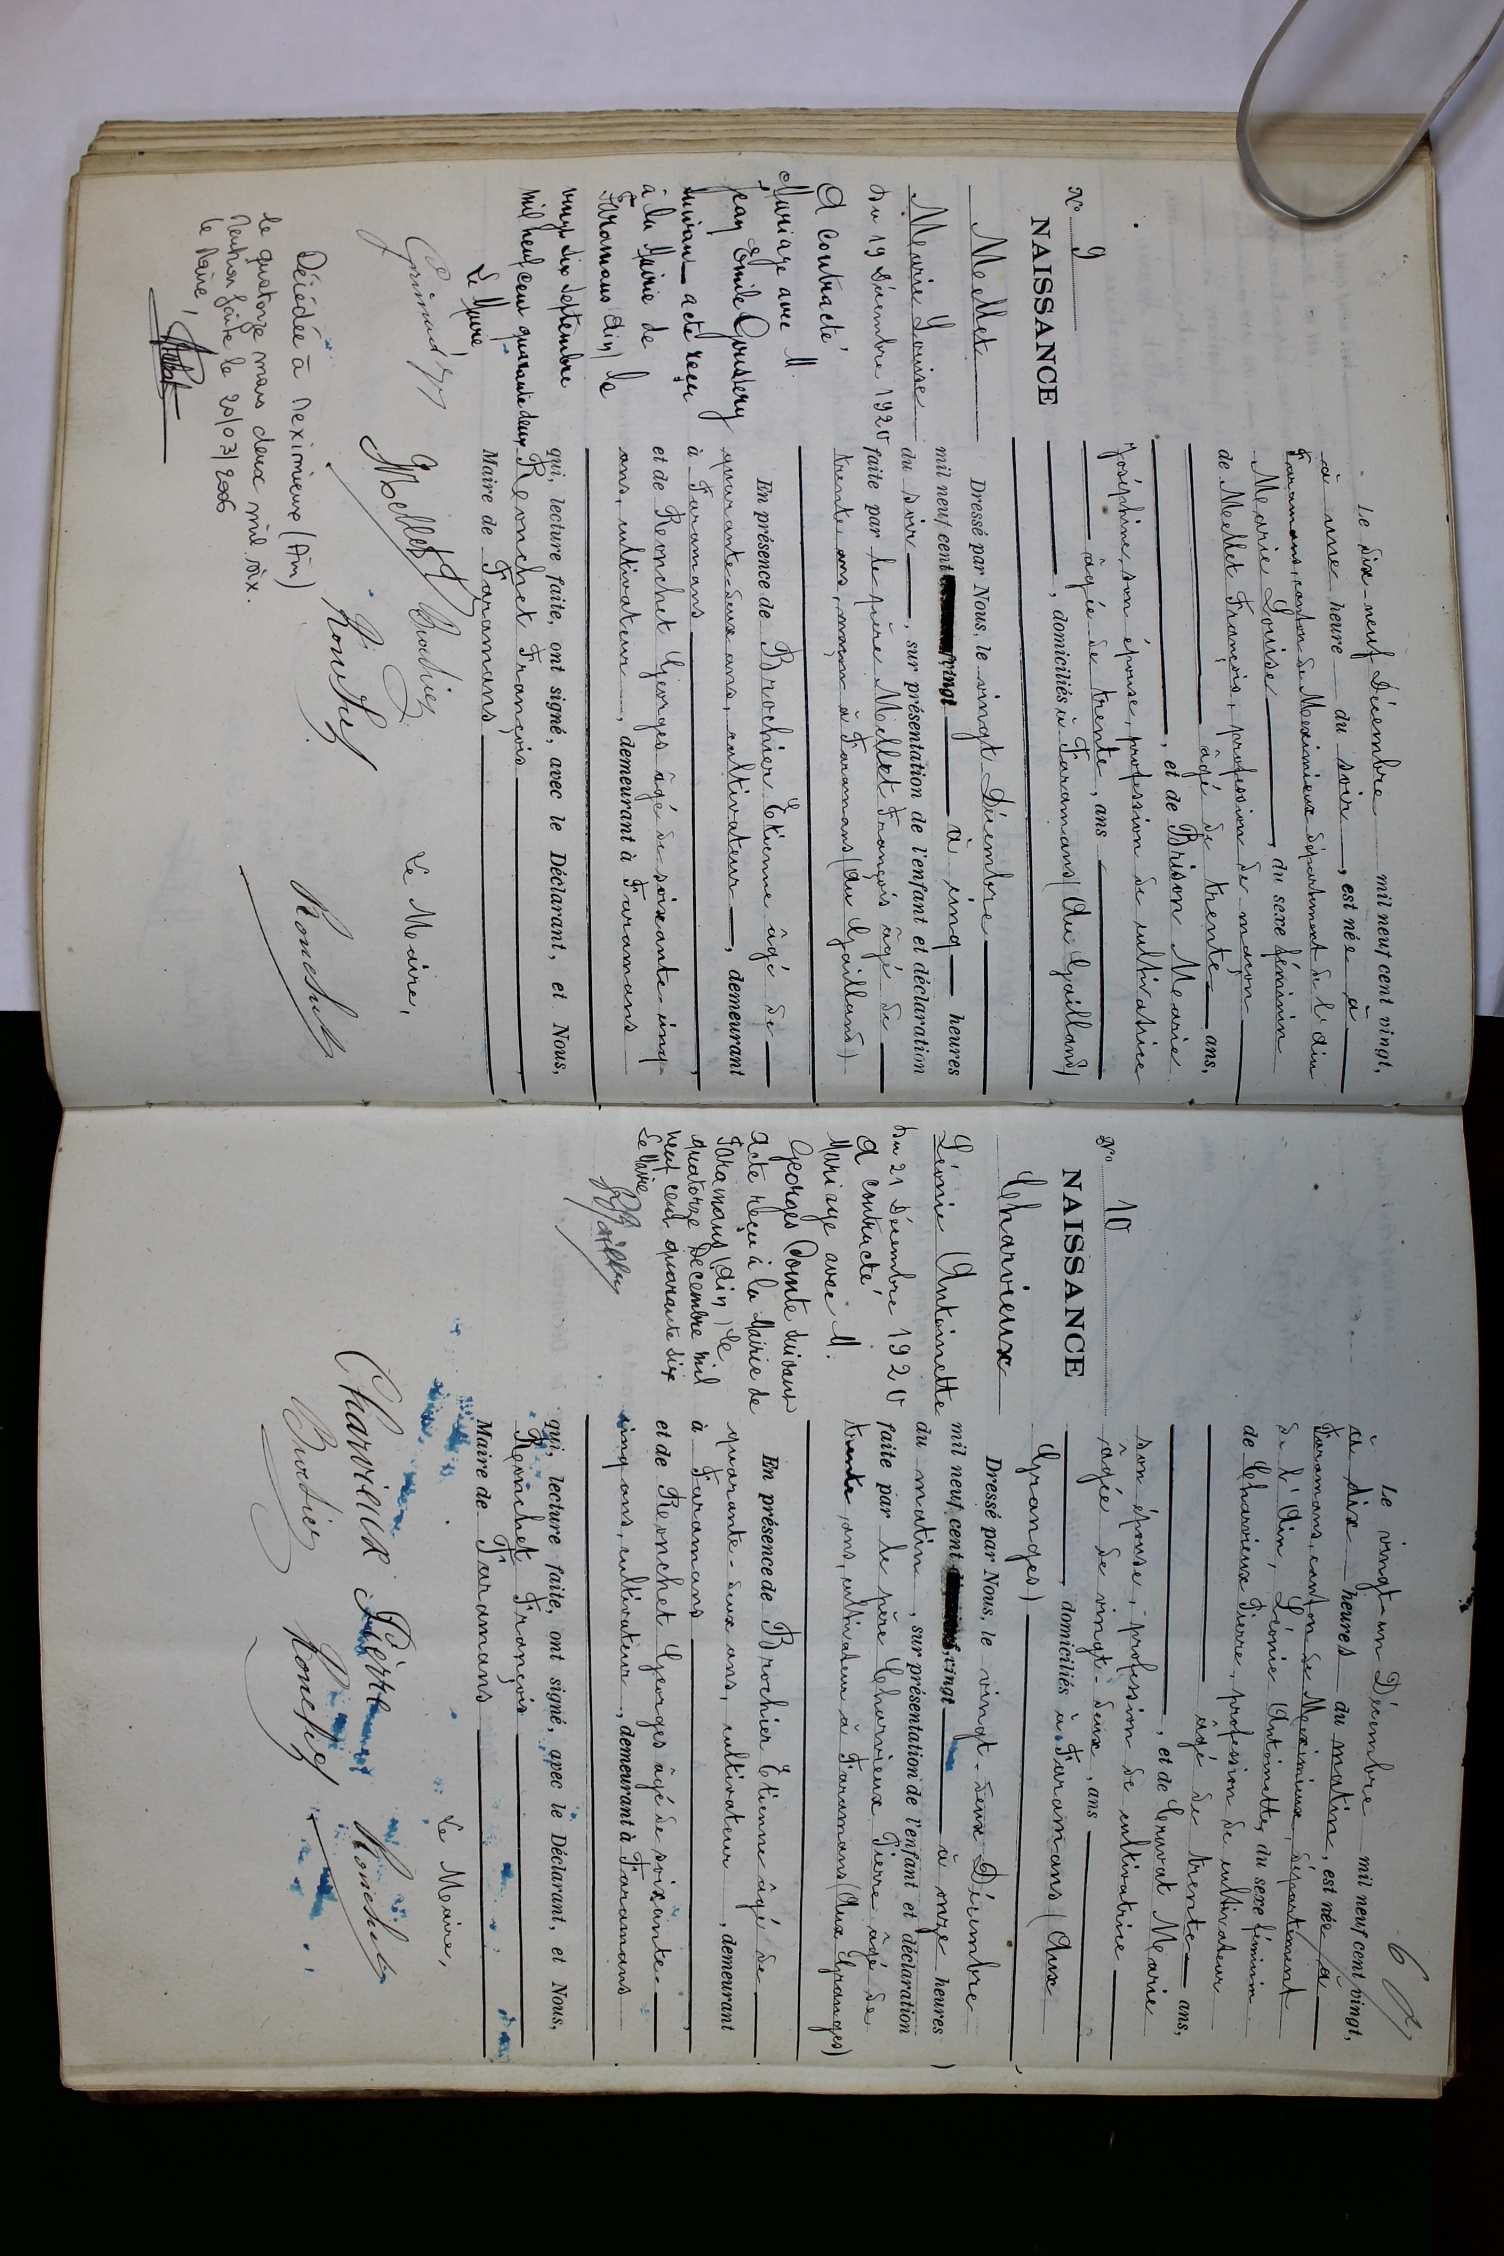 N° 9
NAISSANCE
Mellet
Marie Louise
Du 19 Décembre 1920
A contracté
Mariage avec M.
Jean Emile
suivant acte reçu
à la Mairie de
Faramans (Ain) le
vingt six septembre
mil neuf cent quarante deux
Le Maire
Décédée à Meximieux (Ain)
le quatorze mars deux mil six.
Mention faite le 20/03/2006
Le Maire,
Le dix-neuf Décembre mil neuf cent vingt,
à une heure du soir, est née à
Faramans, canton de Meximieux département de l'Ain
Marie Louise, du sexe féminin
de Mellet François, profession de maçon
âgé de trente ans,
et de Brison Marie
Joséphine, son épouse, profession de cultivatrice
âgée de trente, ans
, domiciliés à Faramans (Au Gaillard)
Dressé par Nous, le vingt Décembre
mil neuf cent vingt à cinq heures
du soir, sur présentation de l'enfant et déclaration
faite par le père Mellet François âgé de
trente ans, maçon à Faramans (Au Gaillard)
En présence de Brochier Etienne âgé de
quarante-deux ans, cultivateur, demeurant
à Faramans,
et de Ronchet Georges âgé de soixante-cinq
ans, cultivateur, demeurant à Faramans
qui, lecture faite, ont signé, avec le Déclarant, et Nous,
Ronchet François,
Maire de Faramans
Le Maire,
Mellet
Ronchet
Ronchet
6
N° 10
NAISSANCE
Charvieux
Léonie Antoinette
Du 21 Décembre 1920
A contracté
Mariage avec M.
Georges Comte suivant
acte reçu à la Mairie de
Faramans (Ain) le
quatorze Décembre mil
neuf cent quarante six
Le Maire
Le vingt-un Décembre mil neuf cent vingt,
à dix heures du matin, est née à
Faramans, canton de Meximieux, département
de l'Ain, Léonie Antoinette, du sexe féminin
de Charvieux Pierre, profession de cultivateur
âgé de trente ans,
et de Cravat Marie
son épouse, profession de cultivatrice
âgée de vingt-deux, ans
, domiciliés à Faramans (Aux
Granges)
Dressé par Nous, le vingt-deux Décembre
mil neuf cent vingt à onze heures
du matin, sur présentation de l'enfant et déclaration
faite par le père Charvieux Pierre âgé de
trente, ans, cultivateur à Faramans (Aux Granges)
En présence de Brochier Etienne âgé de
quarante-deux ans, cultivateur, demeurant
à Faramans,
et de Ronchet Georges âgé de soixante-
cinq ans, cultivateur, demeurant à Faramans
qui, lecture faite, ont signé, avec le Déclarant, et Nous,
Ronchet François
Maire de Faramans
Le Maire,
Charvieux Pierre
Ronchet
Ronchet